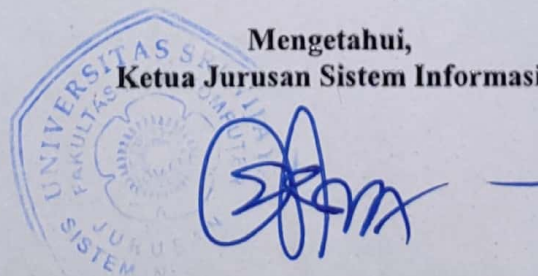 Mengetahui,
Ketua Jurusan Sistem Informasi
UNIVERSITAS
FAKULTAS
JURUSAN
SISTEM